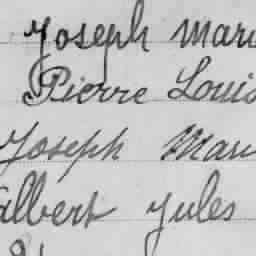 Joseph Mari
Pierre Louis
Joseph Mari
Albert Jules